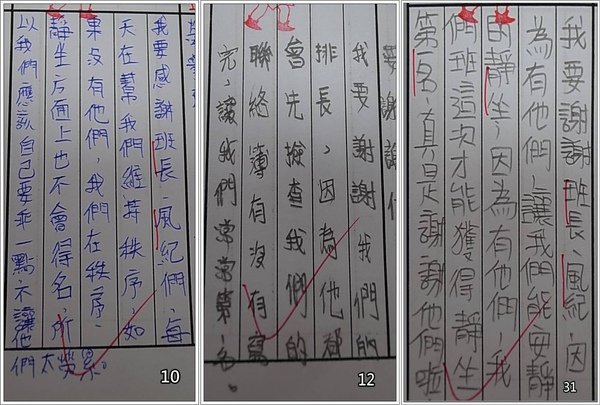 我要感謝班長、風紀們，每
天在幫我們維持秩序，如
果沒有他們，我們在秩序、
靜坐方面上也不會得名，所
以我們應該自己要乖一點不讓他們太勞累。
10
我要謝謝我們的
排長，因為他都
會先檢查我們的
聯絡簿有沒有寫
完，讓我們常常第一名。
12
我要謝謝班長、風紀，因
為有他們，讓我們能安靜
的靜坐，因為有他們，我
們班這次才能獲得靜坐
第一名，真是謝謝他們啦
31